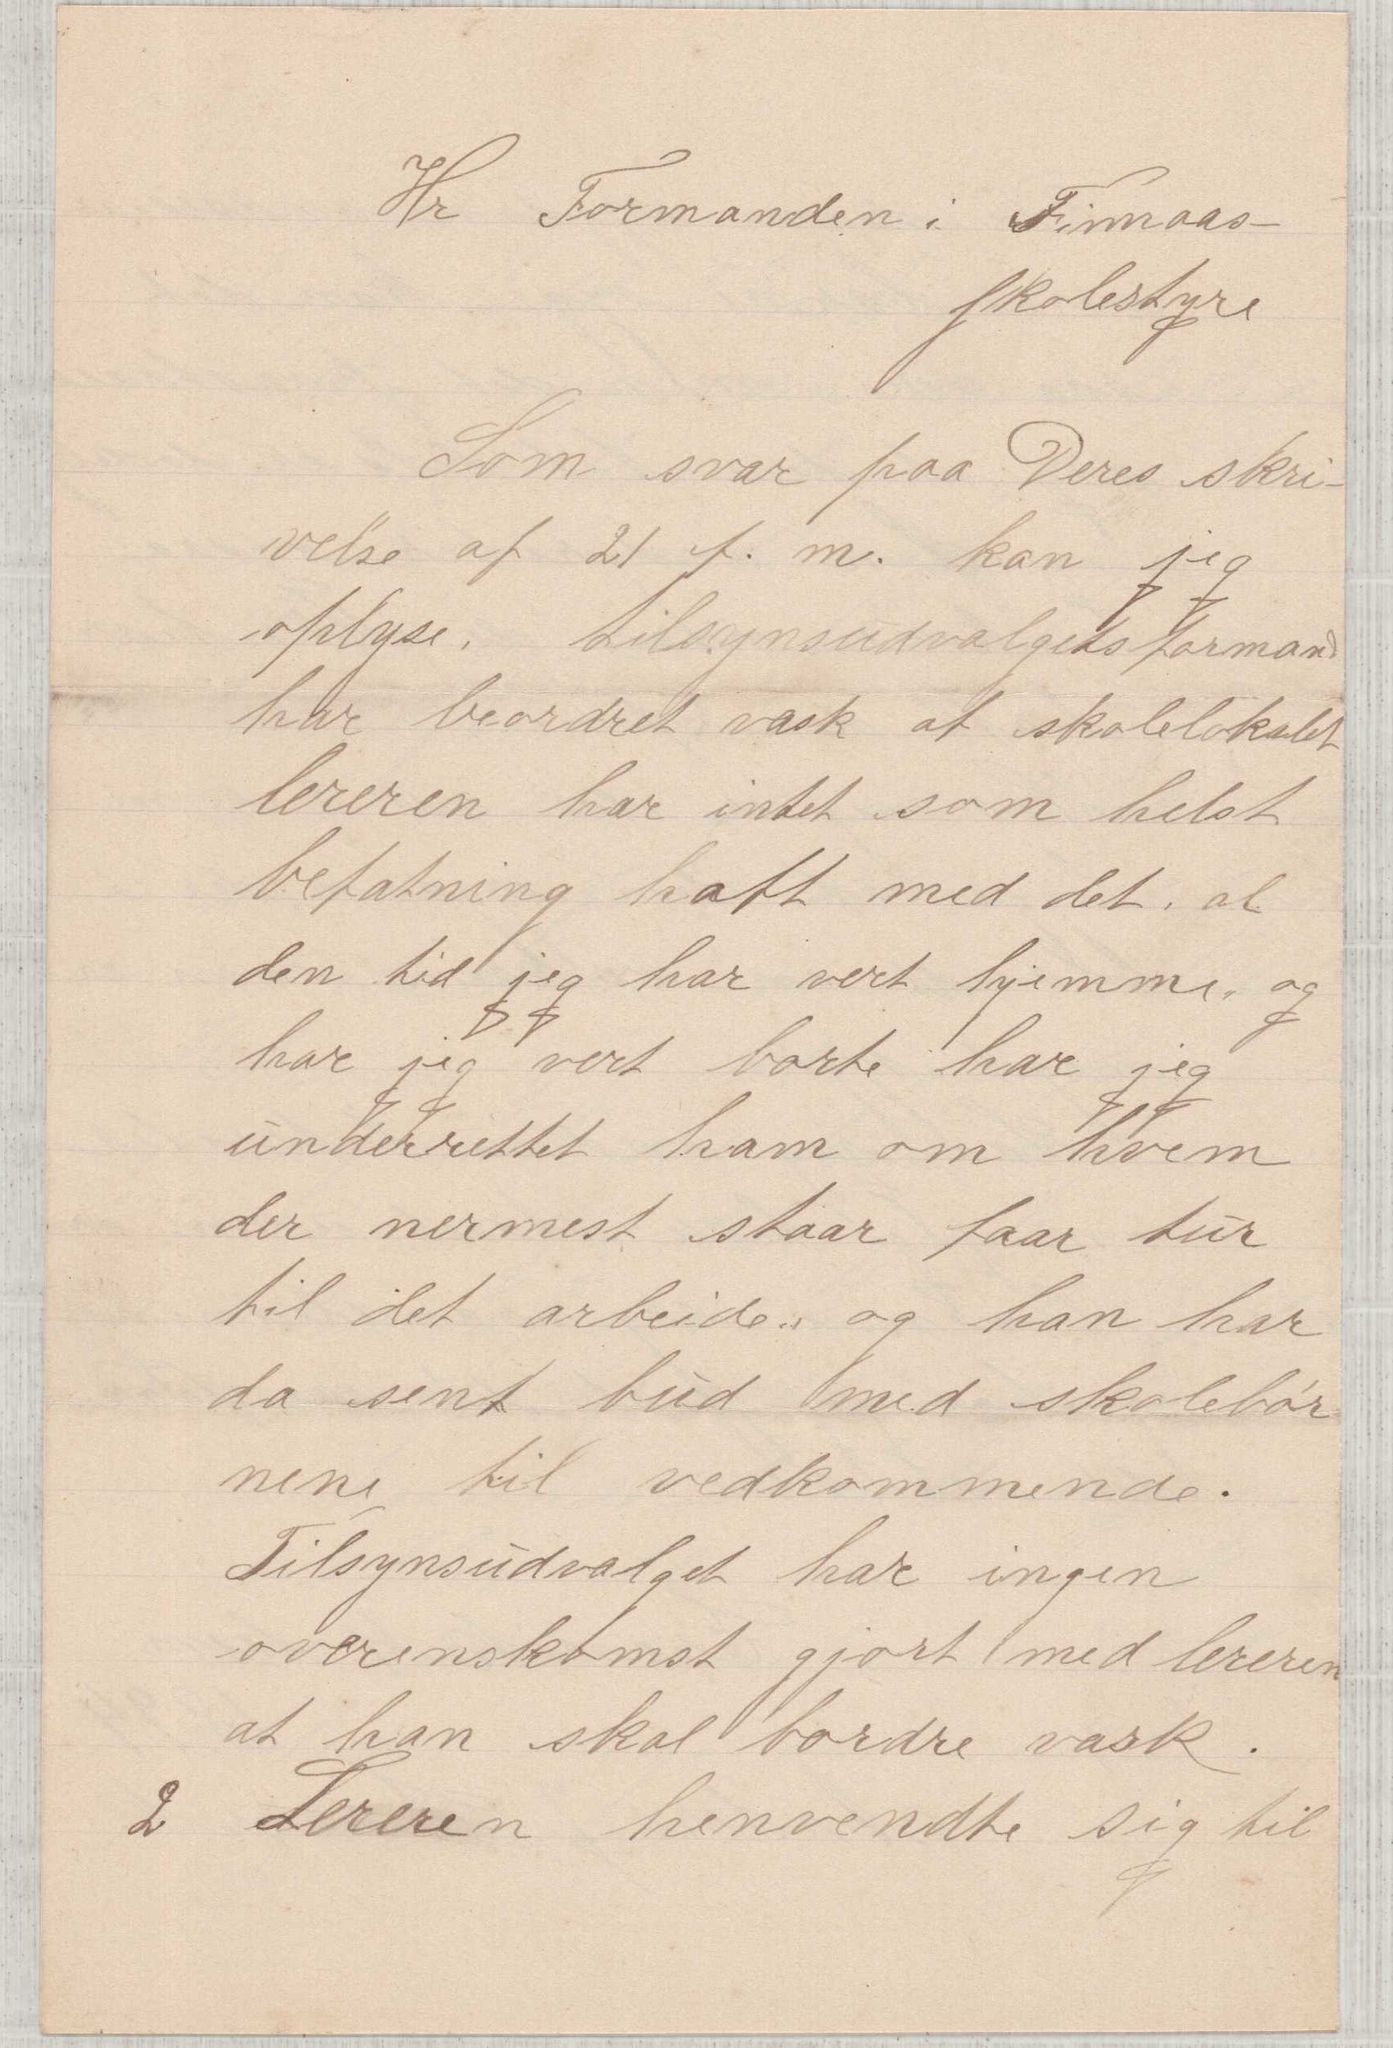 Hr Formanden i Finnaas-
skolestyre
Som svar paa Deres skri-
velse af 21 f. m. kan jeg
oplyse. tilsynsudvalgets formand
har beordret vask af skolelokalet
lereren har intet som helst
befatning haft med det. al
den tid jeg har vert hjemme. og
har jeg vert borte har jeg
underrettet ham om hvem
der nermest staar faar tur
til det arbeide. og han har
da sent bud med skolebør
nene til vedkommende.
Tilsynsudvalget har ingen
overenskomst gjort med lereren
at han skal bordre vask.
2 Lereren henvendte sig til